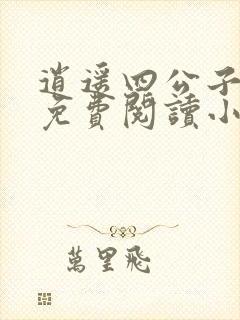 逍遥四公子
免費閱讀小
萬里飛